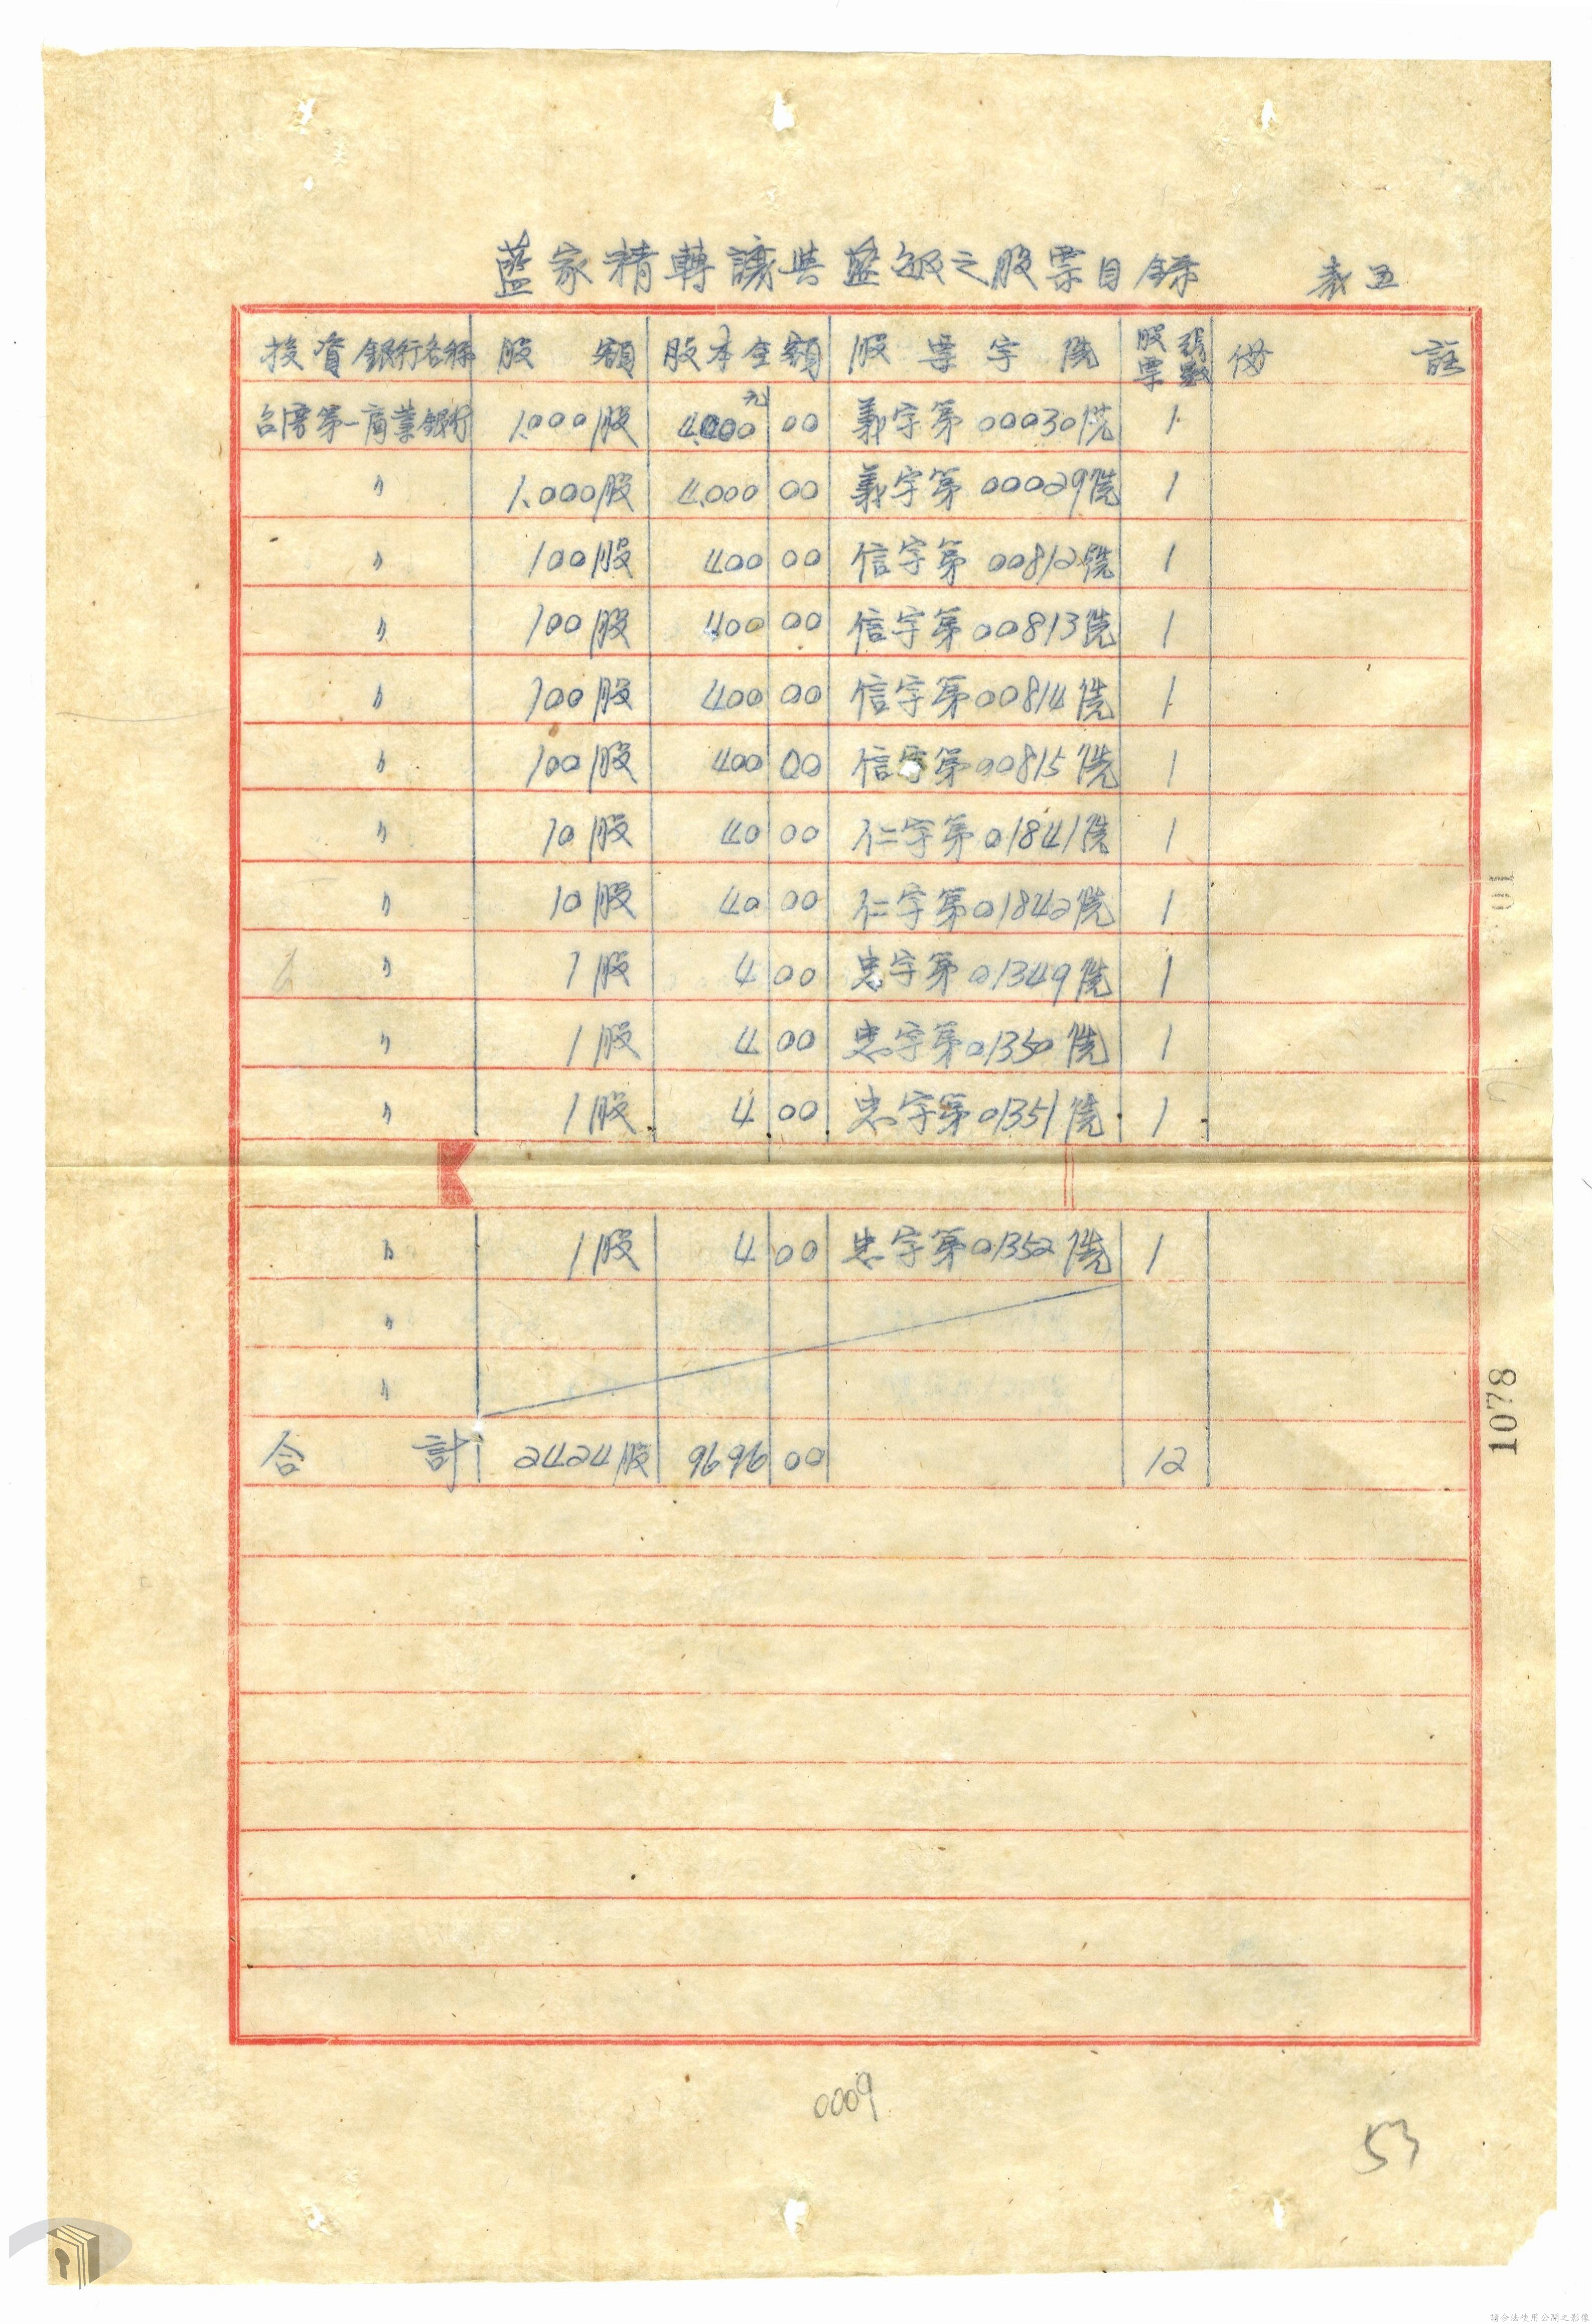 藍家精轉讓與藍敏之股票目錄 表五
投資銀行名称 股額 股本金額 股票字號 股票張數 備註
台湾第一商業銀行 1.000股 4.000元 00 義字第00030號 1
〃 1.000股 4.000 00 義字第00029號 1
〃 100股 400 00 信字第00812號 1
〃 100股 400 00 信字第00813號 1
〃 100股 400 00 信字第00814號 1
〃 100股 400 00 信字第00815號 1
〃 10股 40 00 仁字第01841號 1
〃 10股 40 00 仁字第01842號 1
〃 1股 4 00 忠字第01349號 1
〃 1股 4 00 忠字第01350號 1
〃 1股 4 00 忠字第01351號 1
〃 1股 4 00 忠字第01352號 1
〃
〃
合計 2424股 9696 00 12
1078
0009
53
請合法使用公開之影像